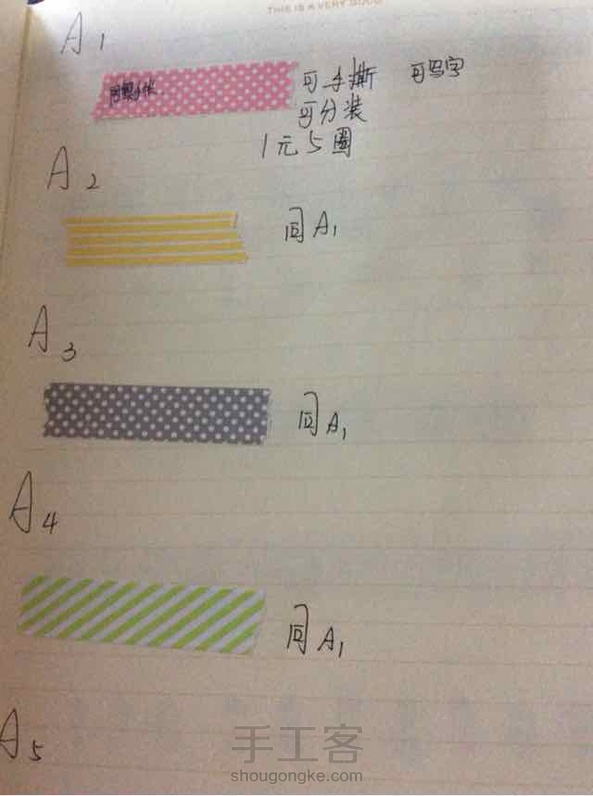 THIS IS A VERY GOOD
A1
可手撕 可写字
可分装
1元5圈
A2
同A1
A3
同A1
A4
同A1
A5
手工客
shougongke.com